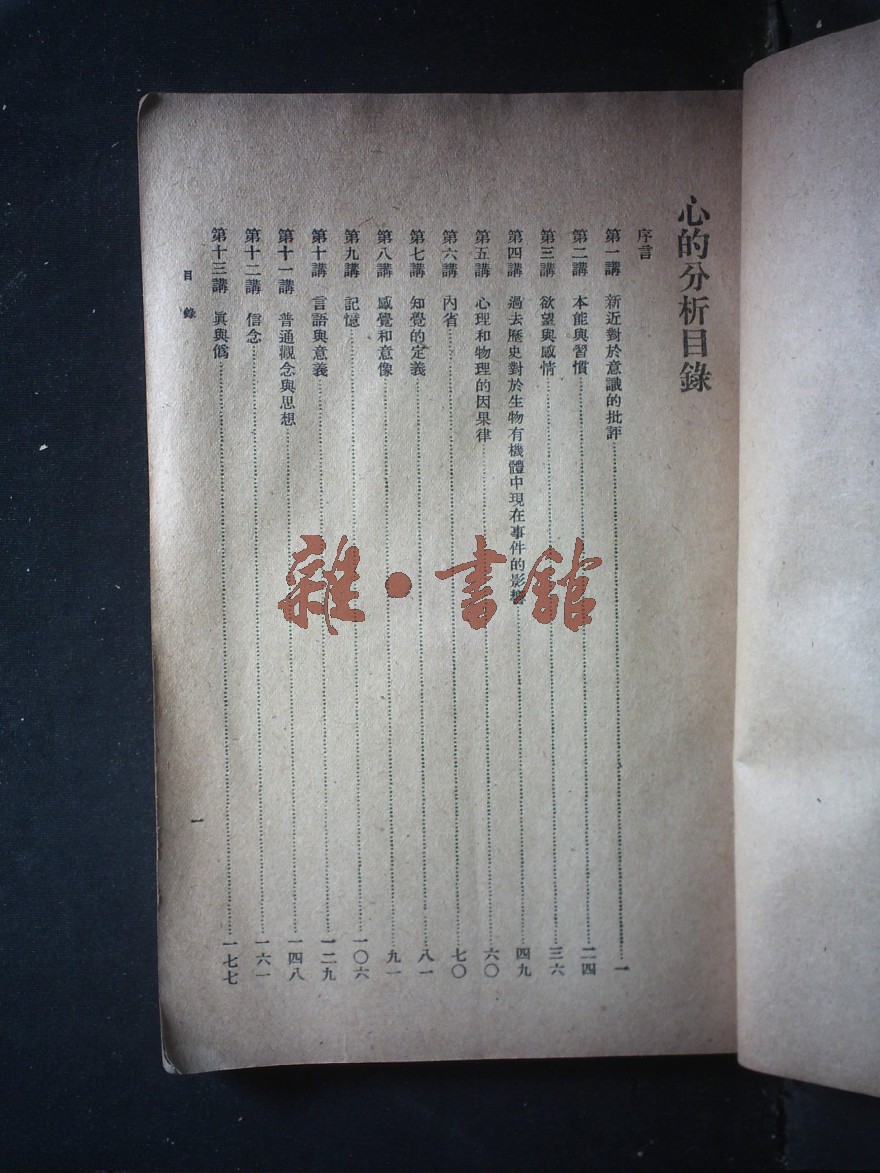 心的分析目錄
序言
第一講 新近對於意識的批評……一
第二講 本能與習慣……二四
第三講 欲望與感情……三六
第四講 過去歷史對於生物有機體中現在事件的影響……四九
第五講 心理和物理的因果律……六〇
第六講 內省……七〇
第七講 知覺的定義……八一
第八講 感覺和意像……九一
第九講 記憶……一〇六
第十講 言語與意義……一二九
第十一講 普通觀念與思想……一四八
第十二講 信念……一六一
第十三講 眞與僞……一七七
目錄
一
雜·書館